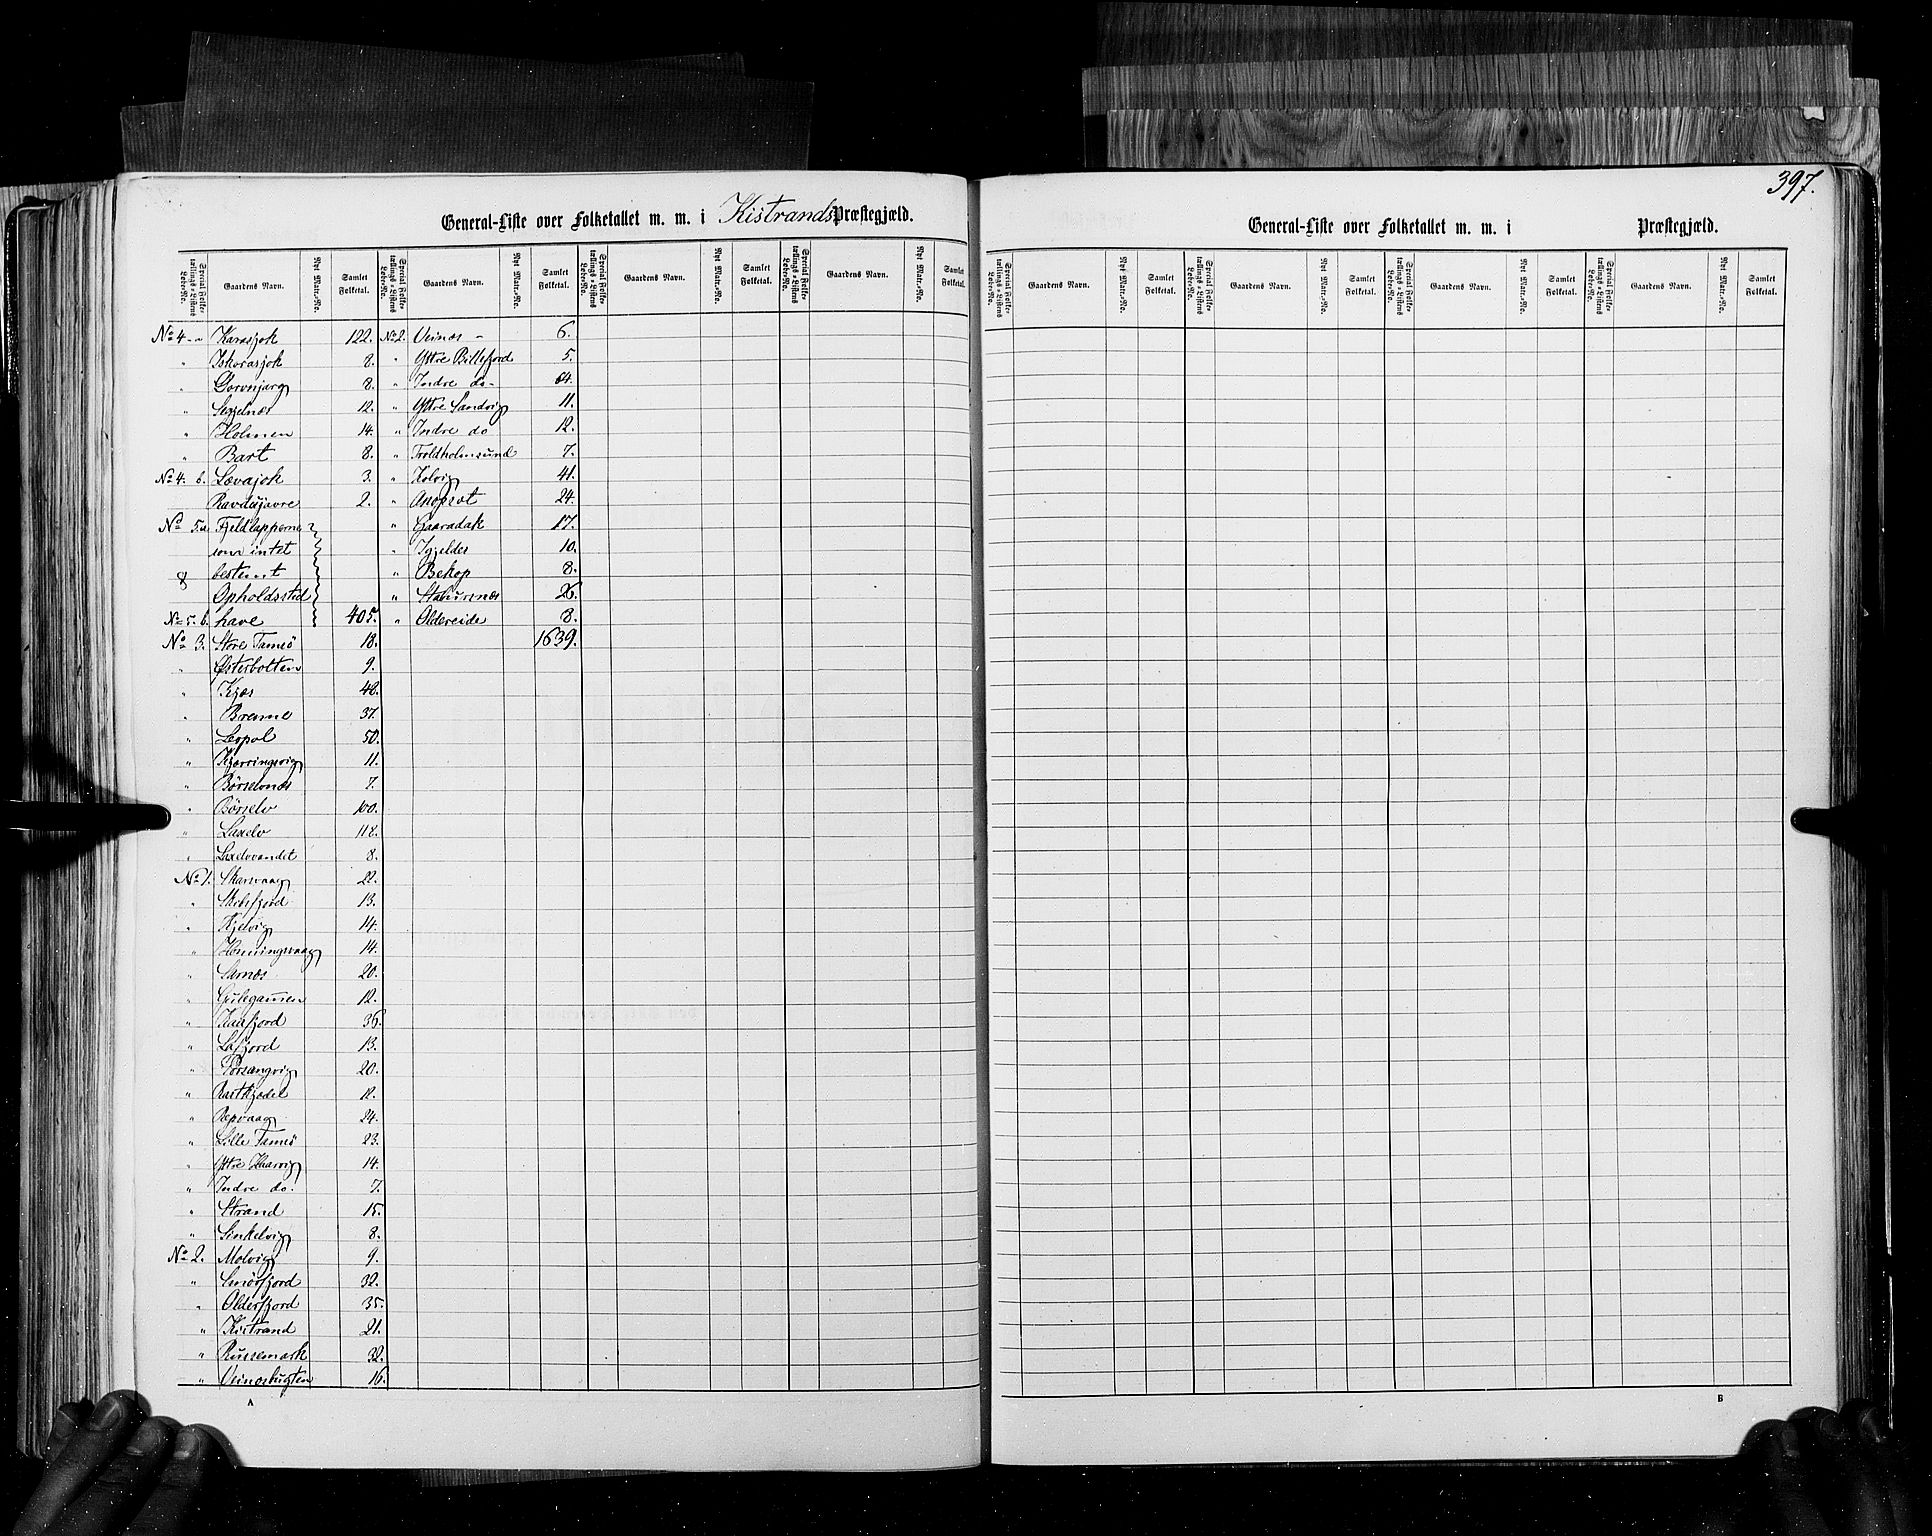 397.
General-Liste over Folketallet m. m. i Kistrands Præstegjæld.
Special Folketællings-Listens Løbe-No. Gaardens Navn. Nyt Matr.-No. Samlet Folketal. Special Folketællings-Listens Løbe-No. Gaardens Navn. Nyt Matr.-No. Samlet Folketal. Special Folketællings-Listens Løbe-No. Gaardens Navn. Nyt Matr.-No. Samlet Folketal. Special Folketællings-Listens Løbe-No. Gaardens Navn. Nyt Matr.-No. Samlet Folketal.
No 4 a Karasjok 122.
" Iskorasjok 8.
" Gorvnjarg 8.
" 12.
" Holmen 14.
" Bart 8.
No 4. b. Lævajok 3.
Ravdusjavre 2.
No 5.a Fjeldlapperne
som intet
& bestemt
Opholdssted
No 5. b. have 405.
No 3. Store Tamsö 18.
" Østerbotten 9.
" Kjæs 48.
" Brenne 37.
" Leirpol 50.
" Kjærringvig 11.
" Börselvnæs 7.
" Börselv 100.
" Laxelv 118.
" Laxelvvandet 8.
No 1. Skarsvaag 22.
" Skibsfjord 13.
" Kjelvig 14.
" Honningsvaag 14.
" Sarnæs 20.
" Gulegammen 12.
" Kaafjord 36.
" Lafjord 13.
" Porsangvig 20.
" 12.
" Repvaag 24.
" Lille Tamsö 23.
" Yttre Haavig 14.
" Indre do. 7.
" Strand 15.
" Sinkelvig 8.
No 2. Molvig 9.
" Smörfjord 32.
" Olderfjord 35.
" Kistrand 21.
" Russemark 32.
" Veinæsbugten 16.
No 2. Veinæs - 6.
" Yttre Billefjord 5.
" Indre do - 64.
" Yttre Sandvig 11.
" Indre do 12.
" Troldholmsund 7.
" Kolvig 41.
" Anopsæt 24.
" Gaaradak 17.
" Igjeldas 10.
" Bekop 8.
" Staburnæs 26.
" Oldereide 3.
1639.
A
General-Liste over Folketallet m. m. i Præstegjæld.
Special Folketællings-Listens Løbe-No. Gaardens Navn. Nyt Matr.-No. Samlet Folketal. Special Folketællings-Listens Løbe-No. Gaardens Navn. Nyt Matr.-No. Samlet Folketal. Special Folketællings-Listens Løbe-No. Gaardens Navn. Nyt Matr.-No. Samlet Folketal. Special Folketællings-Listens Løbe-No. Gaardens Navn. Nyt Matr.-No. Samlet Folketal.
B